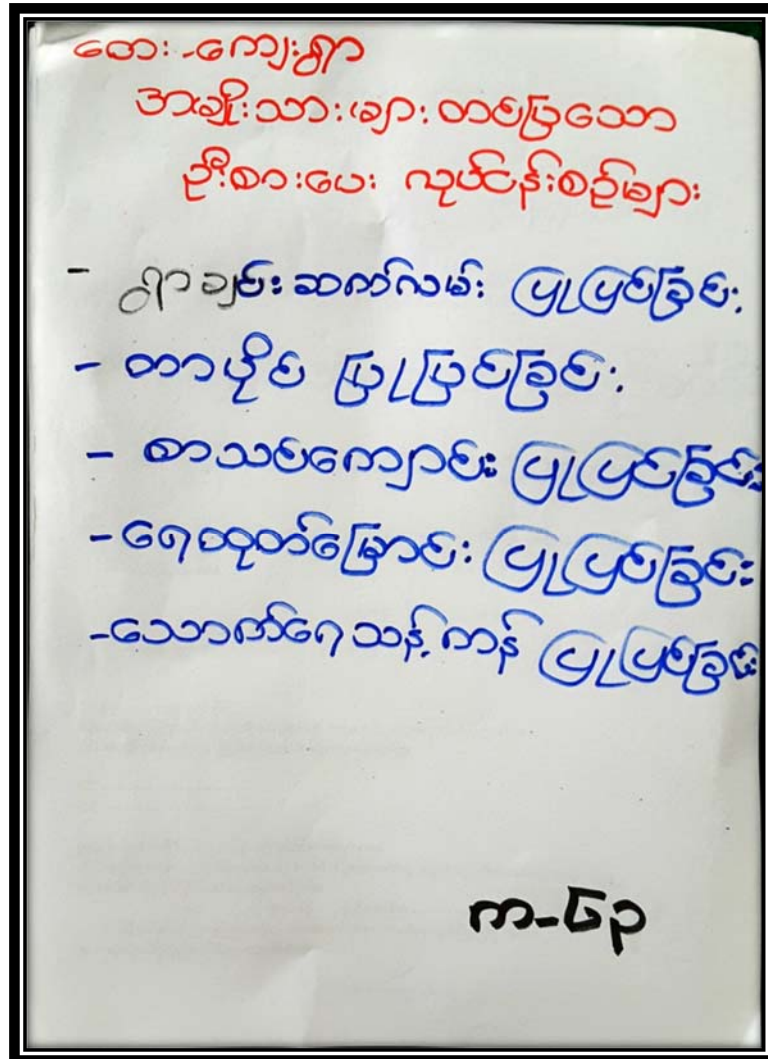 တေး-ကျေးရွာ
အမျိုးသားများ တင်ပြသော
ဦးစားပေး လုပ်ငန်းစဉ်များ
- ရွာချင်းဆက်လမ်း ပြုပြင်ခြင်း
- တာပိုင် ပြုပြင်ခြင်း
- စာသင်ကျောင်း ပြုပြင်ခြင်း
- ရေထုတ်မြောင်း ပြုပြင်ခြင်း
- သောက်ရေသန့်ကန် ပြုပြင်ခြင်း